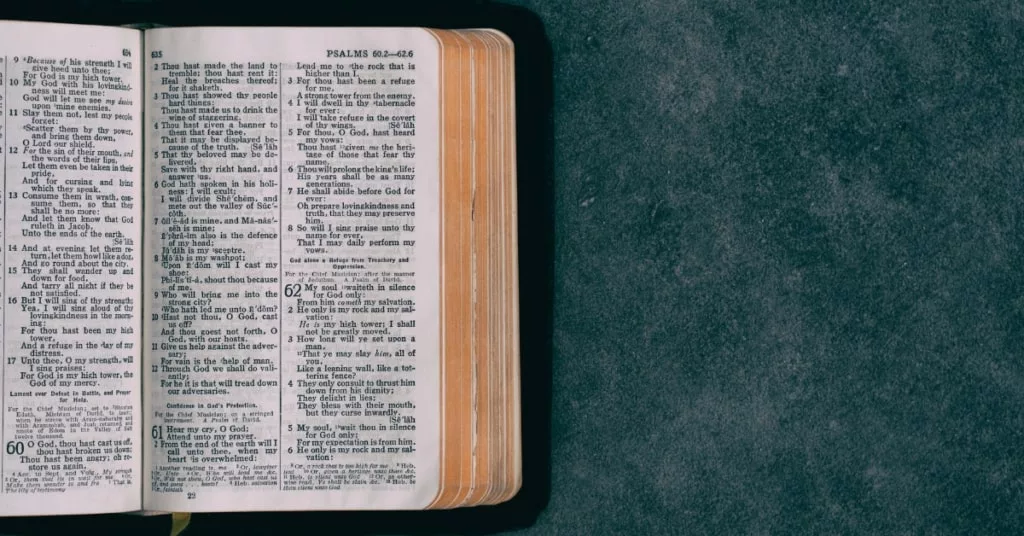 634
9 Because of his strength I will
give heed unto thee;
For God is my high tower.
10 My God with his lovingkind-
ness will meet me:
God will let me see my desire
upon mine enemies.
11 Slay them not, lest my people
forget:
Scatter them by thy power,
and bring them down,
O Lord our shield.
12 For the sin of their mouth, and
the words of their lips,
Let them even be taken in their
pride,
And for cursing and lying
which they speak.
13 Consume them in wrath, con-
sume them, so that they
shall be no more:
And let them know that God
ruleth in Jacob,
Unto the ends of the earth.
[Sē´lăh
14 And at evening let them re-
turn, let them howl like a dog,
And go round about the city.
15 They shall wander up and
down for food,
And tarry all night if they be
not satisfied.
16 But I will sing of thy strength;
Yea, I will sing aloud of thy
lovingkindness in the morn-
ing:
For thou hast been my high
tower,
And a refuge in the day of my
distress.
17 Unto thee, O my strength, will
I sing praises:
For God is my high tower, the
God of my mercy.
Lament over Defeat in Battle, and Prayer
for Help.
For the Chief Musician; set to
60 O God, thou hast cast us off,
thou hast broken us down;
Thou hast been angry; oh re-
store us again.
635
PSALMS 60.2—62.6
2 Thou hast made the land to
tremble; thou hast rent it:
Heal the breaches thereof;
for it shaketh.
3 Thou hast showed thy people
hard things:
Thou hast made us to drink the
wine of staggering.
4 Thou hast given a banner to
them that fear thee,
That it may be displayed be-
cause of the truth. [Sē´lăh
5 That thy beloved may be de-
livered,
Save with thy right hand, and
answer us.
6 God hath spoken in his holi-
ness: I will exult;
I will divide Shē´chĕm, and
mete out the valley of Sŭc´-
cŏth.
7 Gĭl´ê-ăd is mine, and Mă-năs´-
sĕh is mine;
Ē´phrå-ĭm also is the defence
of my head;
Jū´dăh is my sceptre.
8 Mō´ăb is my washpot;
Upon Ē´dŏm will I cast my
shoe:
Phĭ-lĭs´tĭ-å, shout thou because
of me.
9 Who will bring me into the
strong city?
Who hath led me unto Ē´dŏm?
10 Hast not thou, O God, cast
us off?
And thou goest not forth, O
God, with our hosts.
11 Give us help against the adver-
sary;
For vain is the help of man.
12 Through God we shall do vali-
antly;
For he it is that will tread down
our adversaries.
Confidence in God's Protection.
For the Chief Musician; on a stringed
instrument. A Psalm of David.
61 Hear my cry, O God;
Attend unto my prayer.
2 From the end of the earth will I
call unto thee, when my
heart is overwhelmed:
22
Lead me to the rock that is
higher than I.
3 For thou hast been a refuge
for me,
A strong tower from the enemy.
4 I will dwell in thy tabernacle
for ever:
I will take refuge in the covert
of thy wings. [Sē´lăh
5 For thou, O God, hast heard
my vows:
Thou hast given me the heri-
tage of those that fear thy
name.
6 Thou wilt prolong the king's life;
His years shall be as many
generations.
7 He shall abide before God for
ever:
Oh prepare lovingkindness and
truth, that they may preserve
him.
8 So will I sing praise unto thy
name for ever,
That I may daily perform my
vows.
God alone a Refuge from Treachery and
Oppression.
For the Chief Musician; after the manner
of Jeduthun. A Psalm of David.
62 My soul waiteth in silence
for God only:
From him cometh my salvation.
2 He only is my rock and my sal-
vation:
He is my high tower; I shall
not be greatly moved.
3 How long will ye set upon a
man,
That ye may slay him, all of
you,
Like a leaning wall, like a tot-
tering fence?
4 They only consult to thrust him
down from his dignity;
They delight in lies;
They bless with their mouth,
but they curse inwardly.
[Sē´lăh
5 My soul, wait thou in silence
for God only;
For my expectation is from him.
6 He only is my rock and my